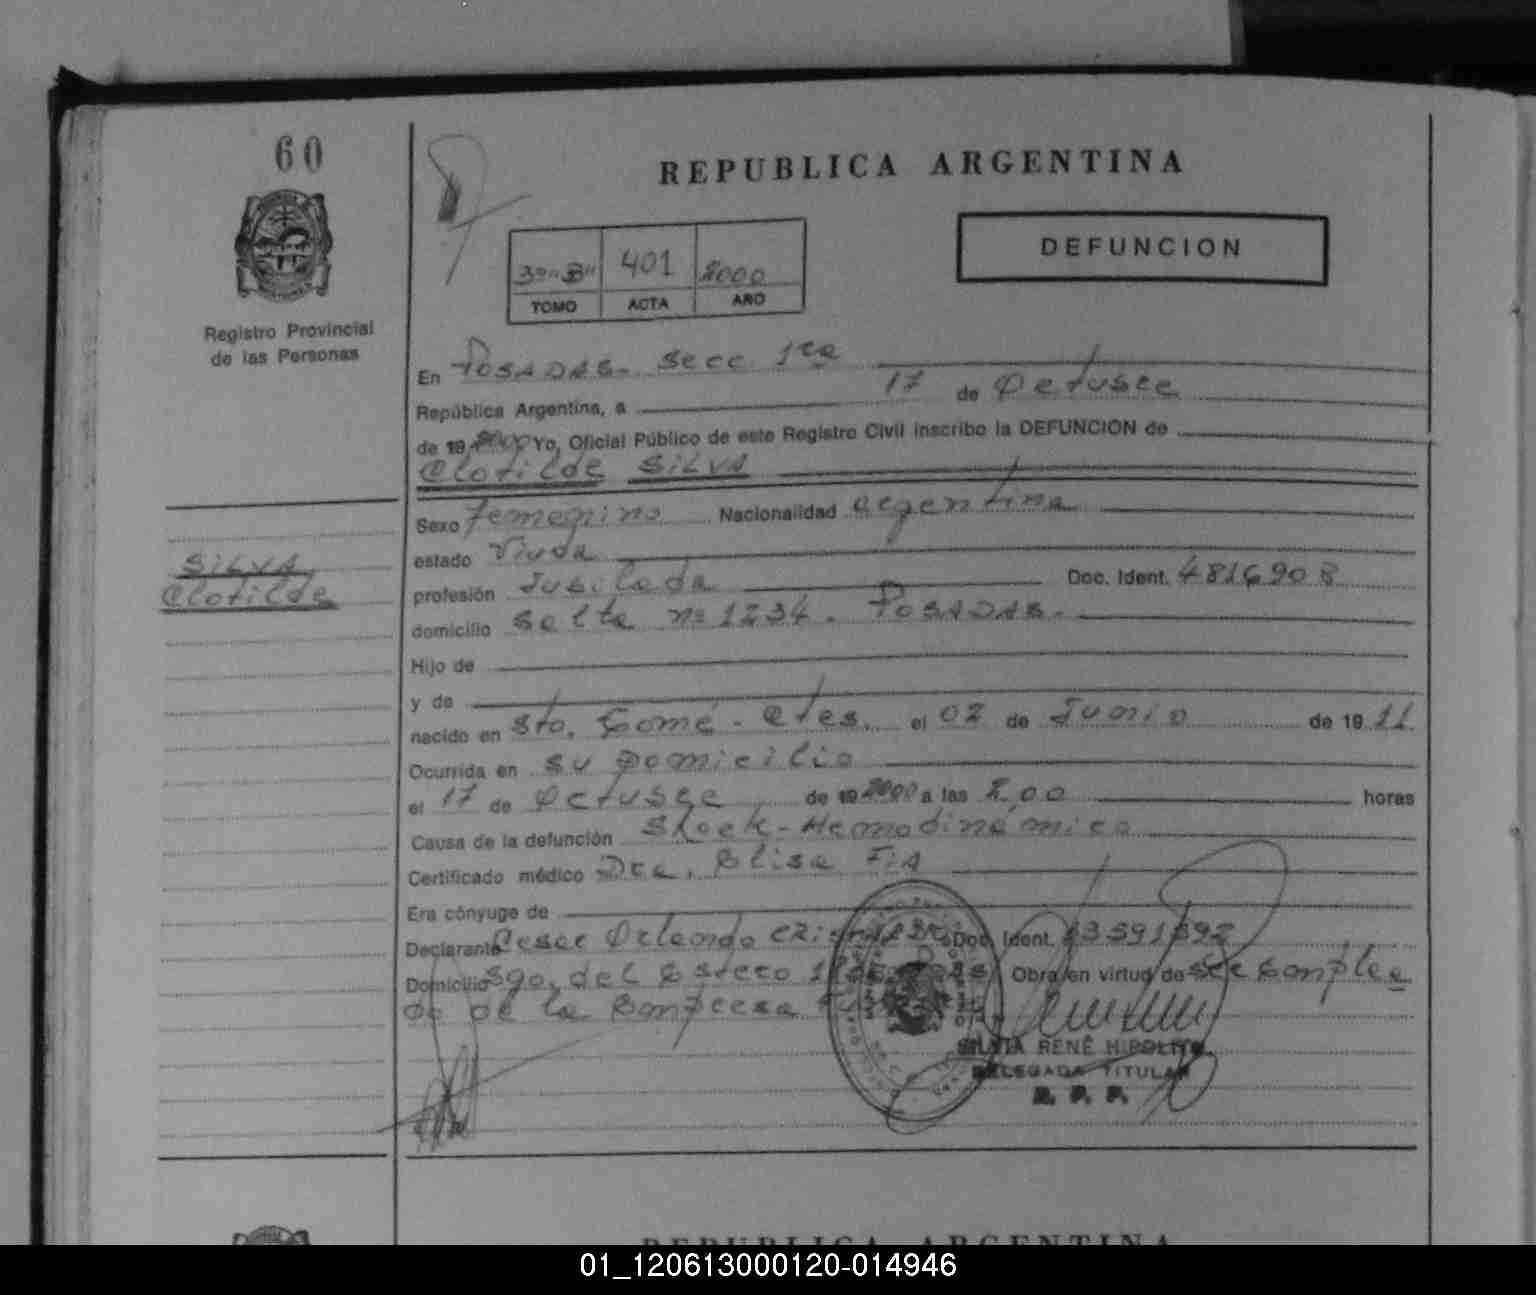 60
REPUBLICA ARGENTINA
DEFUNCION
3º "B" 401 2000
TOMO ACTA AÑO
Registro Provincial
de las Personas
En POSADAS. Secc. 1ra
República Argentina, a 17 de Octubre
de 19 2000 Yo, Oficial Público de este Registro Civil inscribo la DEFUNCION de
Clotilde SILVA
Sexo Femenino Nacionalidad argentina
estado Viuda
SILVA
Clotilde
profesión Jubilada Doc. Ident. 4816908
domicilio Salta nº 1234. POSADAS.
Hijo de
y de
nacido en Sto. Tomé - Ctes. el 02 de Junio de 1911
Ocurrida en su Domicilio
el 17 de Octubre de 19 2000 a las 2,00 horas
Causa de la defunción Shock-Hemodinámico
Certificado médico Dra. Elisa FIA
Era cónyuge de
Declarante Cesar Orlando Doc. Ident.
Domicilio Sgo. del Estero Obra en virtud de ser Emplea
do de la Empresa
SILVIA RENÉ HIPOLITO
DELEGADA TITULAR
R. P. P.
REPUBLICA ARGENTINA
01_120613000120-014946